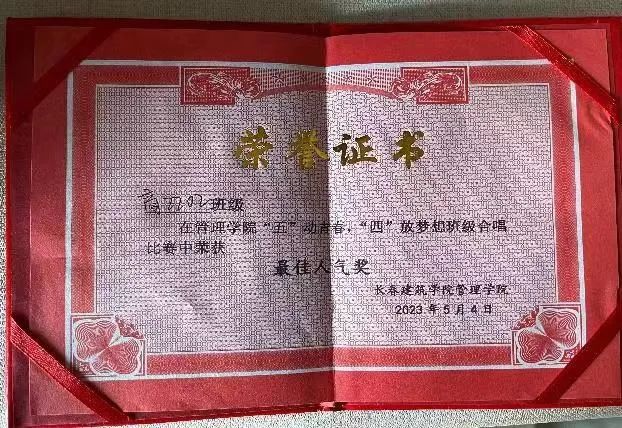 荣誉证书
班级
在管理学院“五”动青春,“四”放梦想班级合唱
比赛中荣获
最佳人气奖
长春建筑学院管理学院
2023年5月4日